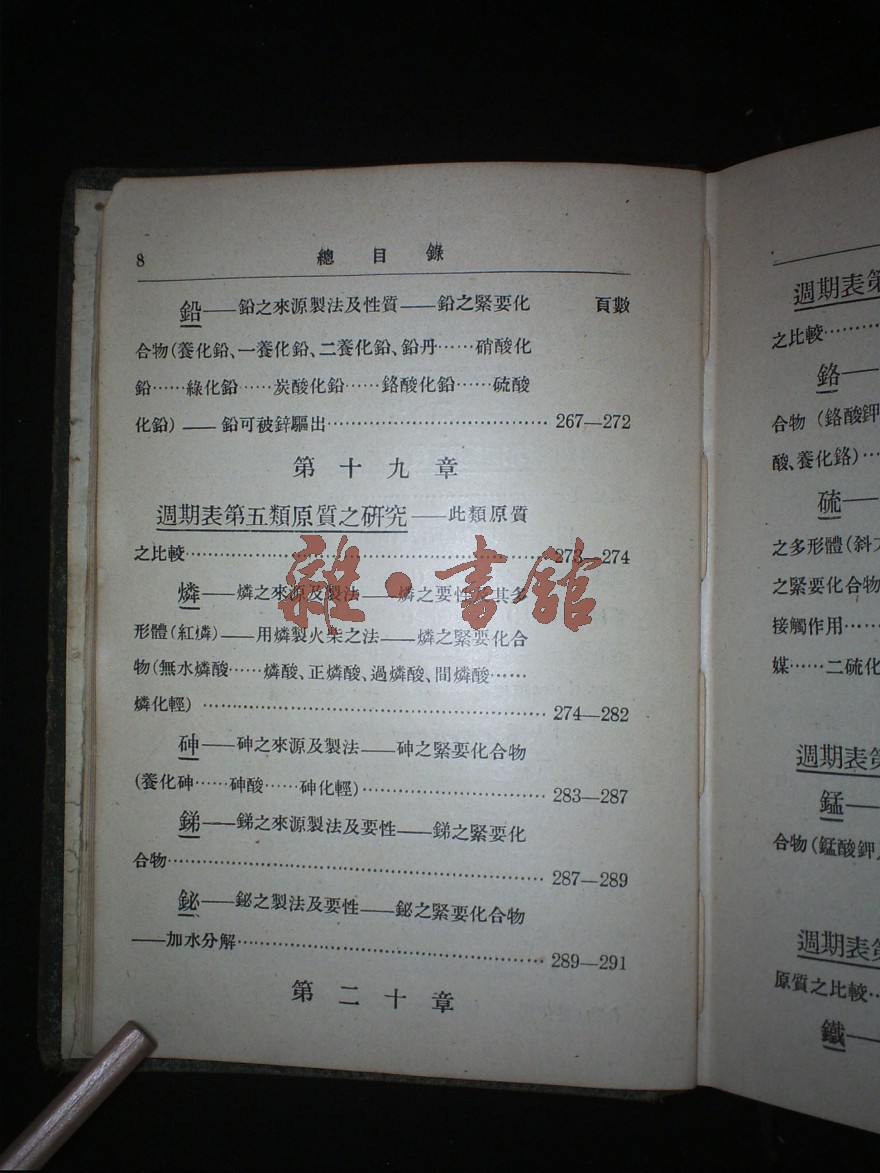 8
總目錄
頁數
鉛——鉛之來源製法及性質——鉛之緊要化
合物(養化鉛、一養化鉛、二養化鉛、鉛丹……硝酸化
鉛……綠化鉛……炭酸化鉛……鉻酸化鉛……硫酸
化鉛)——鉛可被鋅驅出……267—272
第十九章
週期表第五類原質之研究——此類原質
之比較……273—274
燐——燐之來源及製法——燐之要性及其多
形體(紅燐)——用燐製火柴之法——燐之緊要化合
物(無水燐酸……燐酸、正燐酸、過燐酸、間燐酸……
燐化輕)……274—282
砷——砷之來源及製法——砷之緊要化合物
(養化砷……砷酸……砷化輕)……283—287
銻——銻之來源製法及要性——銻之緊要化
合物……287—289
鉍——鉍之製法及要性——鉍之緊要化合物
——加水分解……289—291
第二十章
雜·書館
週期表第
之比較……
鉻—
合物(鉻酸鉀
酸、養化鉻)…
硫—
之多形體(斜
之緊要化合物
接觸作用……
媒……二硫化
週期表第
錳—
合物(錳酸鉀
週期表第
原質之比較…
鐵—